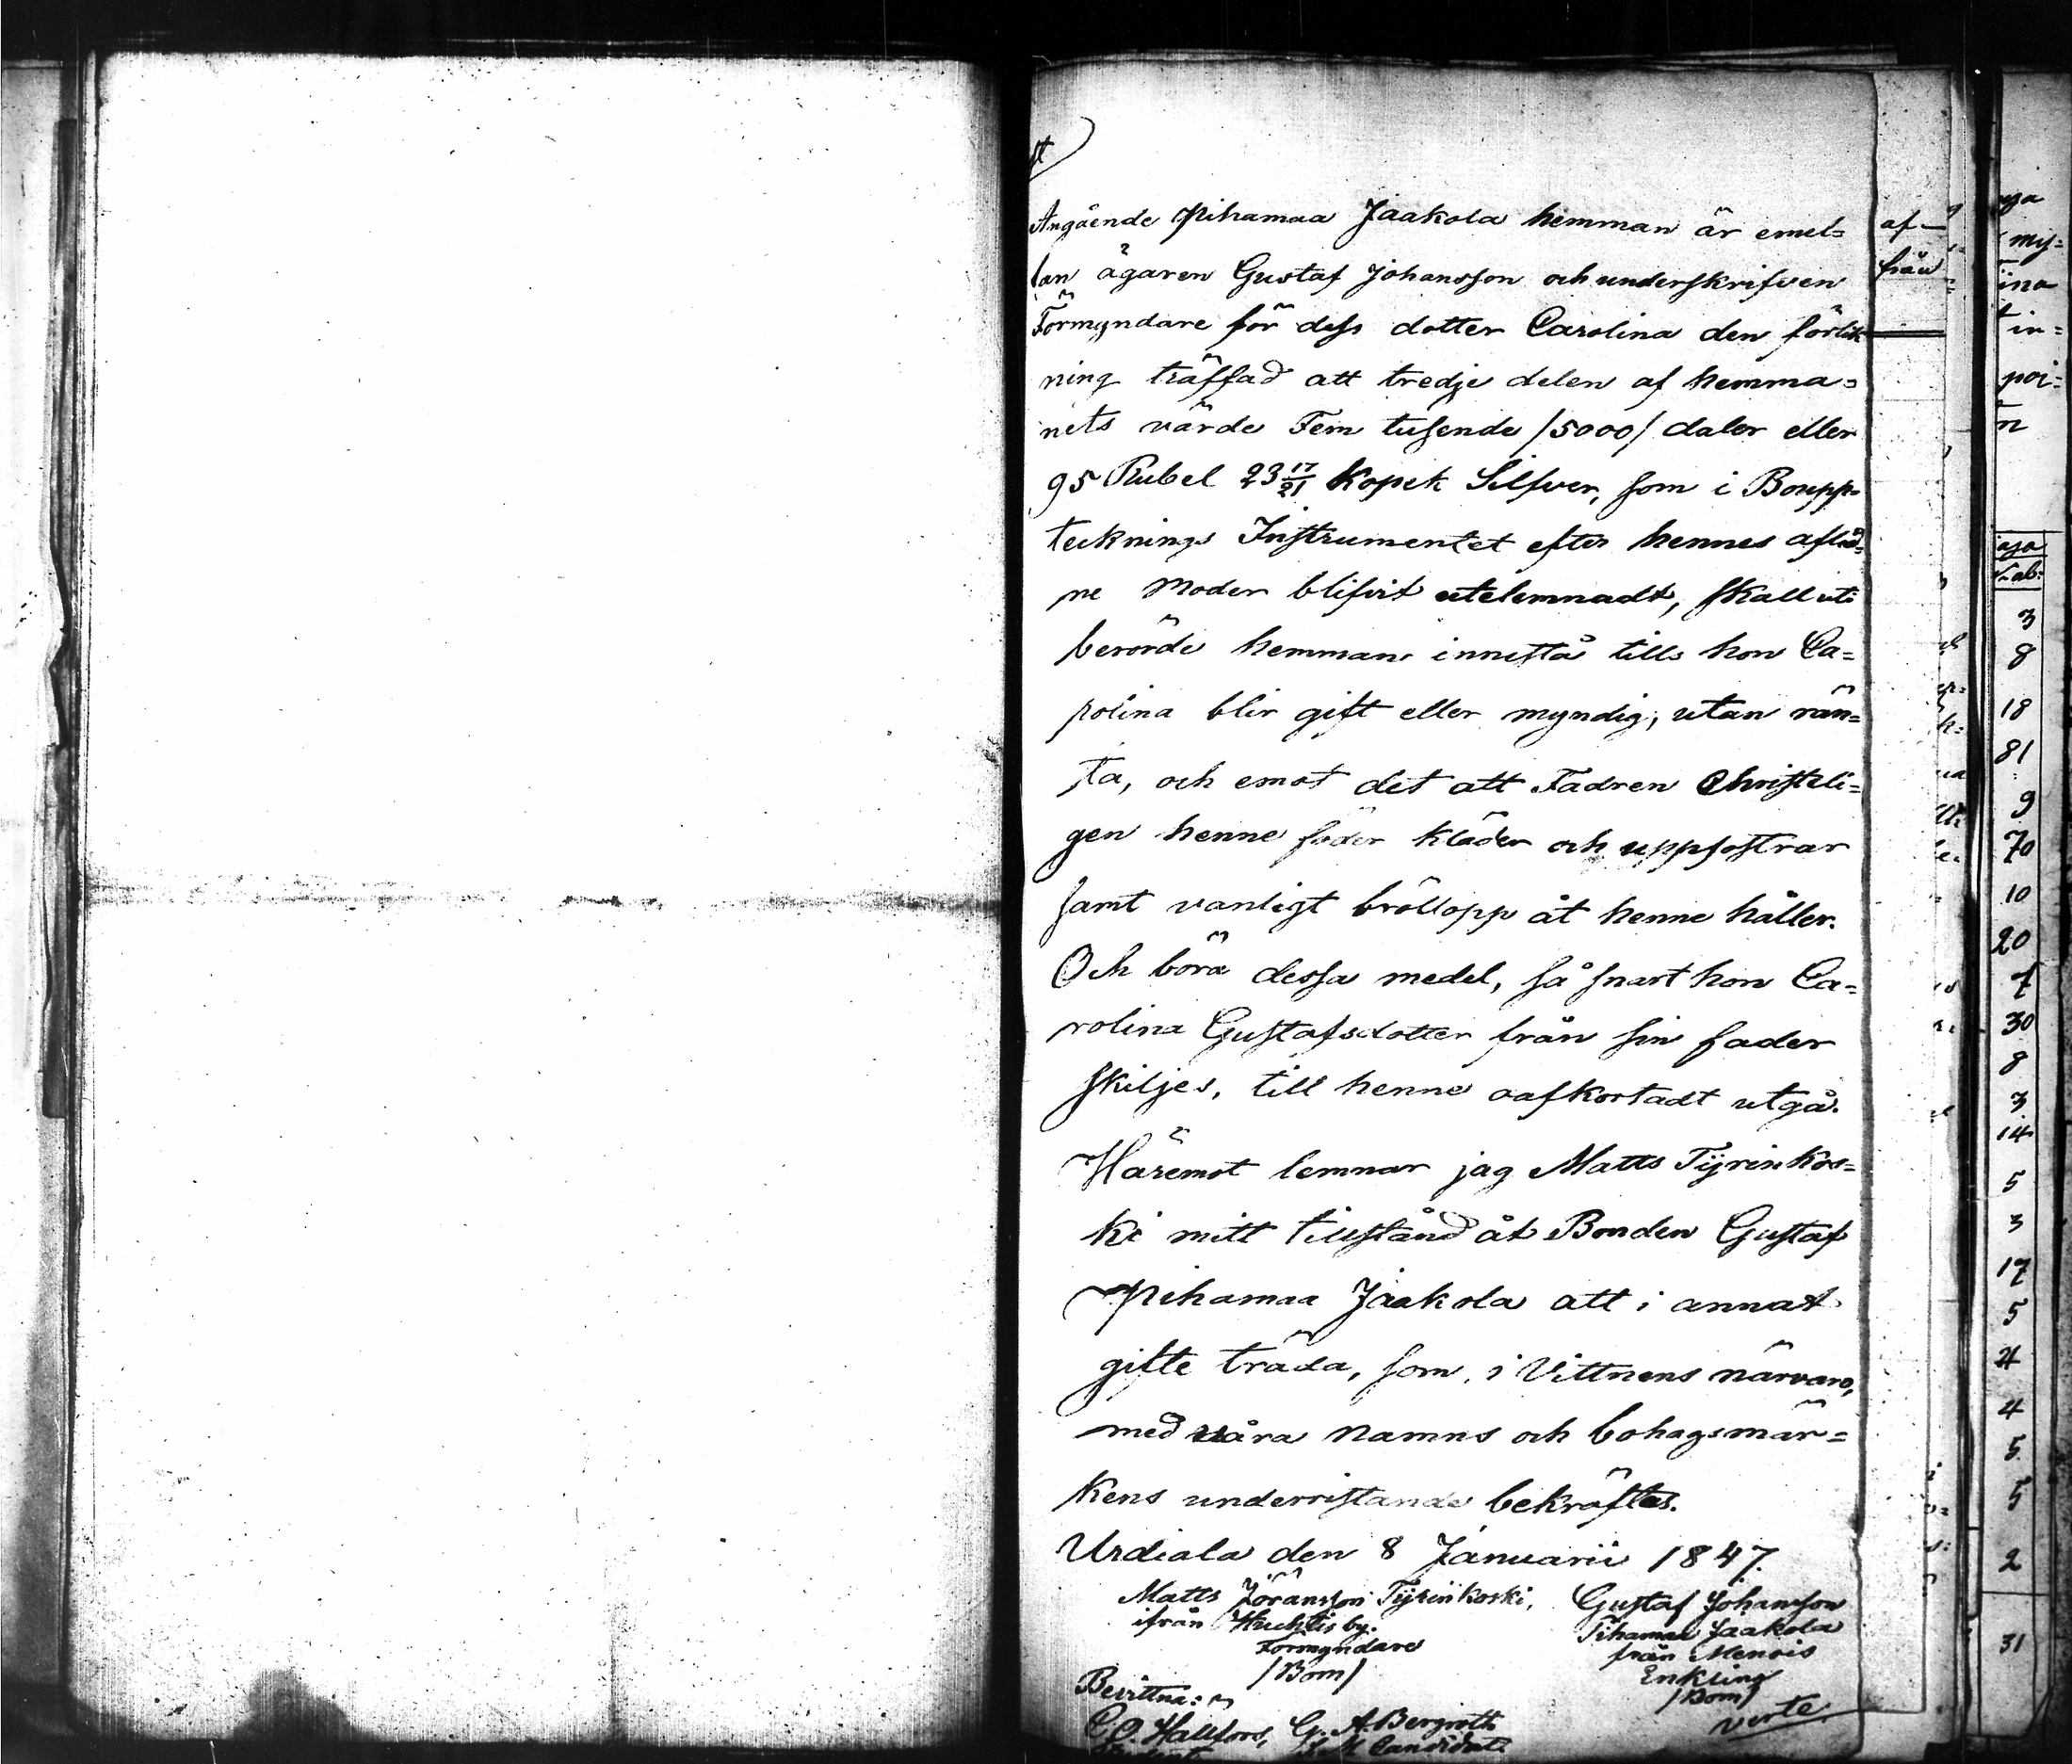 Angående Pihamaa Jaakola hemman är emel=
lan ägaren Gustaf Johansson och underskrifven
Förmyndare för dess dotter Carolina den förlik-
ning träffad att tredje delen af hemma=
nets värde Fem tusende /5000/ daler eller
95 Rubel 23 17/21 Kopek Silfver, som i Boupp=
tecknings Instrumentet efter hennes aflid=
ne Moder blifvit utelemnadt, skall uti
berörde hemman innestå tills hon Ca=
rolina blir gift eller myndig, utan rän=
ta, och emot det att Fadren Christeli=
gen henne föder kläder och uppfostrar
samt vanligt bröllopp åt henne håller.
Och böra dessa medel, så snart hon Ca=
rolina Gustafsdotter från sin fader
skiljes, till henne oafkortadt utgå.
Häremot lemnar jag Matts Tyrinkos=
ki mitt tillstånd åt Bonden Gustaf
Pihamaa Jaakola att i annat
gifte träda, som, i Vittnens närvaro,
med våra namns och bohagsmär=
kens underristande bekräftas.
Urdiala den 8 Januarii 1847.
Matts Jöransson Tyrinkoski,
ifrån Huhtis by.
Förmyndare
/Bom/
Gustaf Johansson
Pihamaa Jaakola
från Menois
Enkling
/Bom/
verte
Bevittna:
C. O. Hallfors, G. A. Bergroth
Candidat.
af
från
my=
ina
in=
poi=
n
3
8
18
81
9
70
10
20
7
30
8
3
14
5
3
17
5
4
4
5
5
2
31